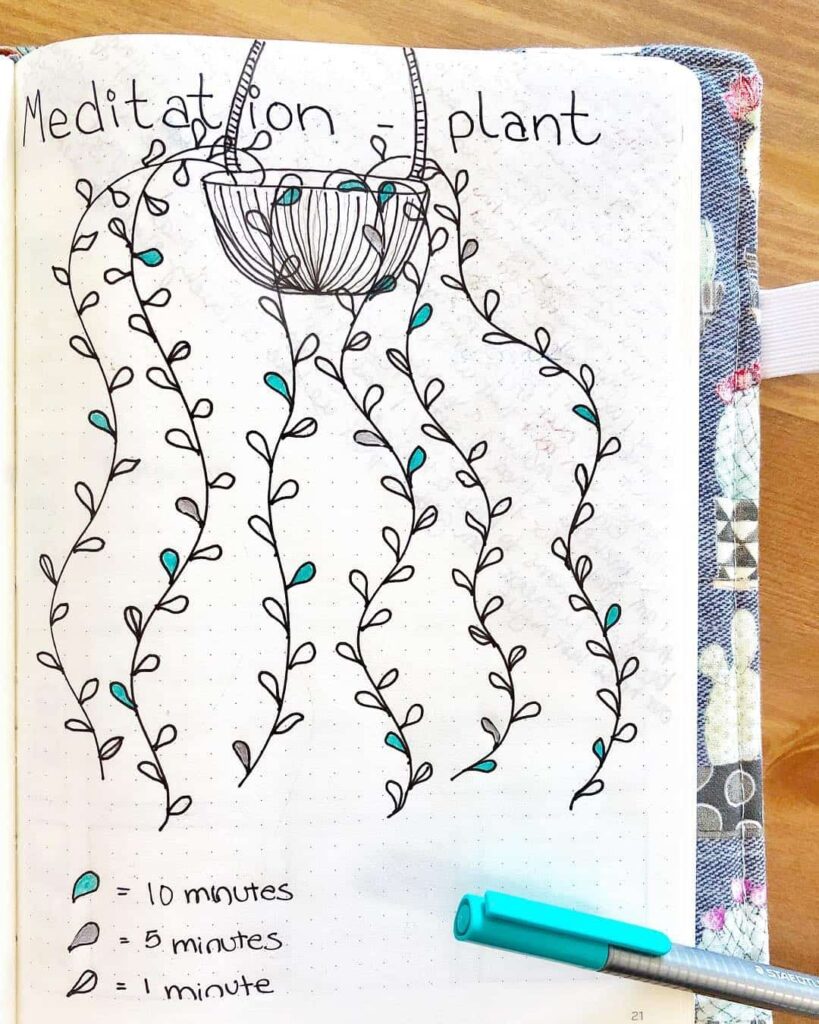 Meditation - plant
= 10 minutes
= 5 minutes
= 1 minute
STAEDTLER
21